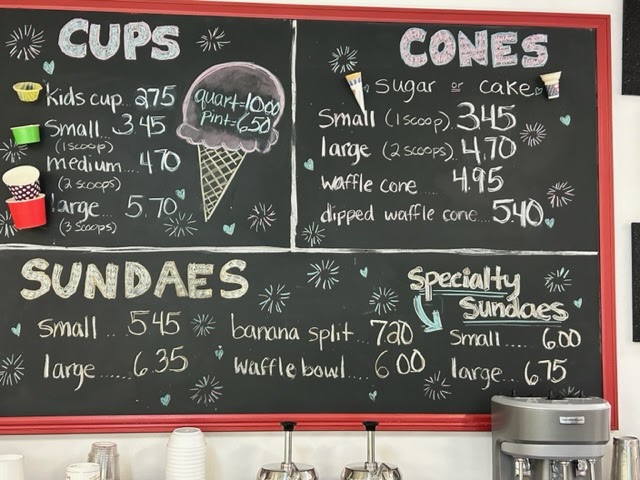 CUPS
Kids cup.. 2.75
Small... 3.45
(1 scoop)
medium.... 4.70
(2 scoops)
large... 5.70
(3 scoops)
quart=10.00
Pint=6.50
CONES
sugar or cake
Small (1 scoop).. 3.45
large (2 scoops).. 4.70
waffle cone.... 4.95
dipped waffle cone... 5.40
SUNDAES
small... 5.45
large..... 6.35
banana split... 7.20
waffle bowl.... 6.00
Specialty
Sundaes
Small.... 6.00
large... 6.75